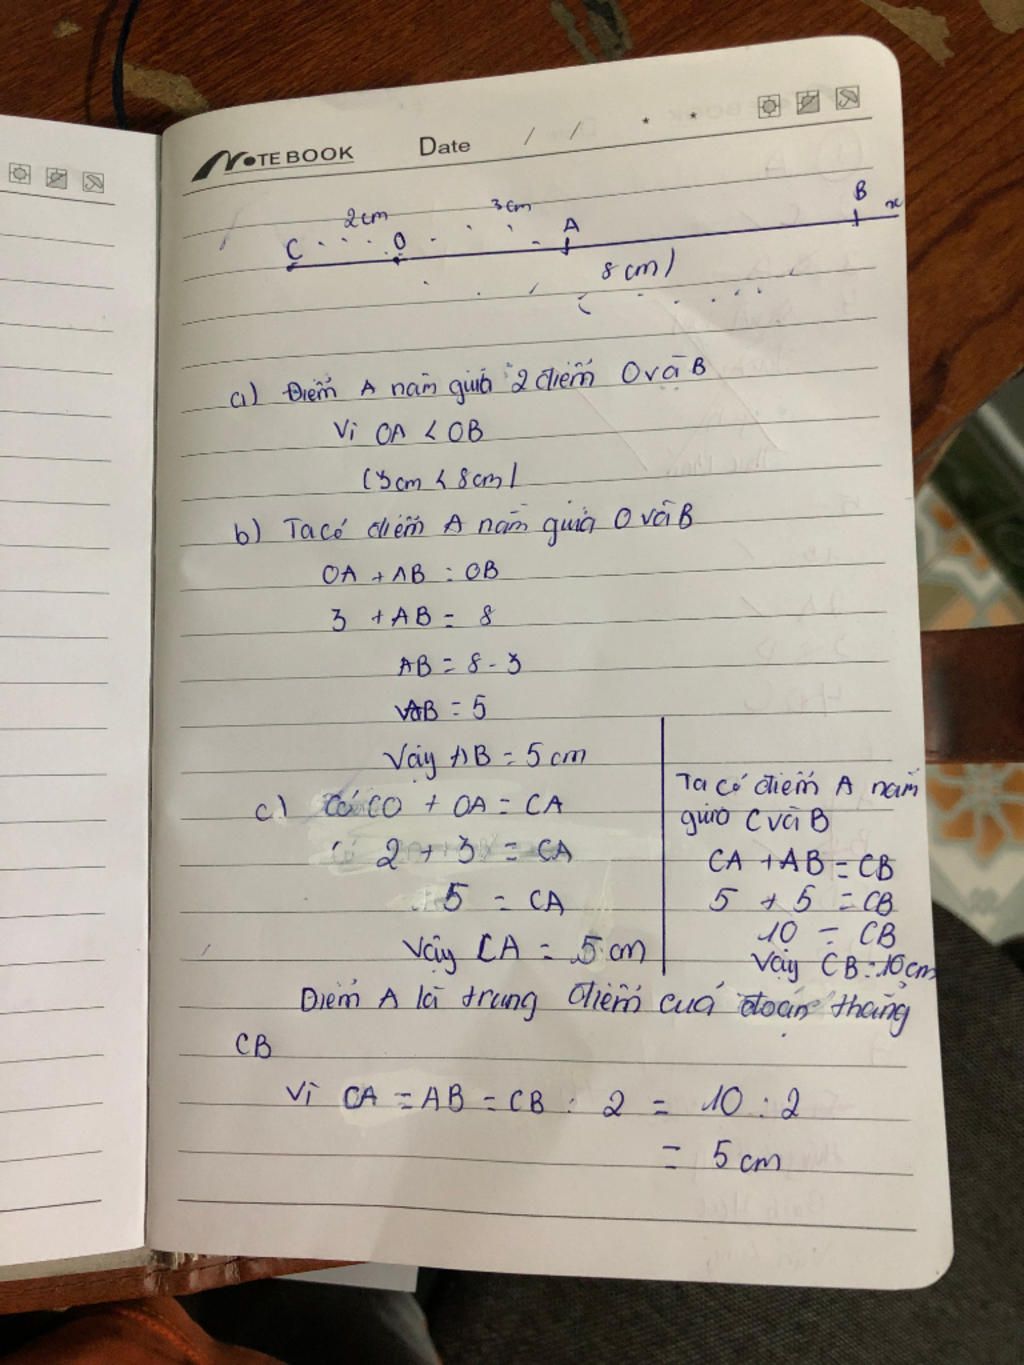 NOTEBOOK Date / / * *
2cm 3cm
C O A B x
8cm)
a) Điểm A nằm giữa 2 điểm O và B
Vì OA < OB
(3cm < 8cm)
b) Ta có điểm A nằm giữa O và B
OA + AB = OB
3 + AB = 8
AB = 8 - 3
AB = 5
Vậy AB = 5cm
c) Có CO + OA = CA
2 + 3 = CA
5 = CA
Vậy CA = 5cm
Ta có điểm A nằm
giữa C và B
CA + AB = CB
5 + 5 = CB
10 = CB
Vậy CB = 10cm
Điểm A là trung điểm cuả đoạn thẳng
CB
Vì CA = AB = CB : 2 = 10 : 2
= 5cm